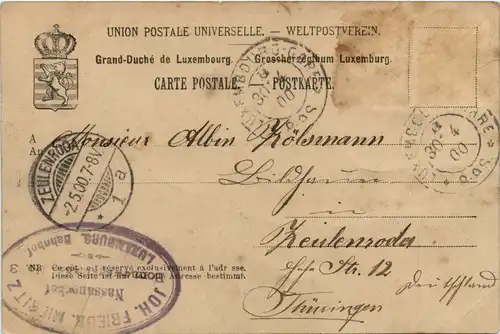 UNION POSTALE UNIVERSELLE. — WELTPOSTVEREIN.
Grand-Duché de Luxembourg. Grossherzogthum Luxemburg.
CARTE POSTALE. POSTKARTE.
LUXEMBOURG-GARE
30 4 00
LUXEMBOURG-GARE
30 4 00
A
An
Monsieur Albin Kölsmann
ZEULENRODA
-2.5.00.7-8V.
* 1 a
Bildhauer
in
Zeulenroda
Hohe Str. 12
Deutschland
Thüringen
NB Ce côté est réservé exclusivement à l'adresse.
Diese Seite ist nur für die Adresse bestimmt.
JOH. FRIEDR.
Nassauerhof
LUXEMBURG, Bahnhof